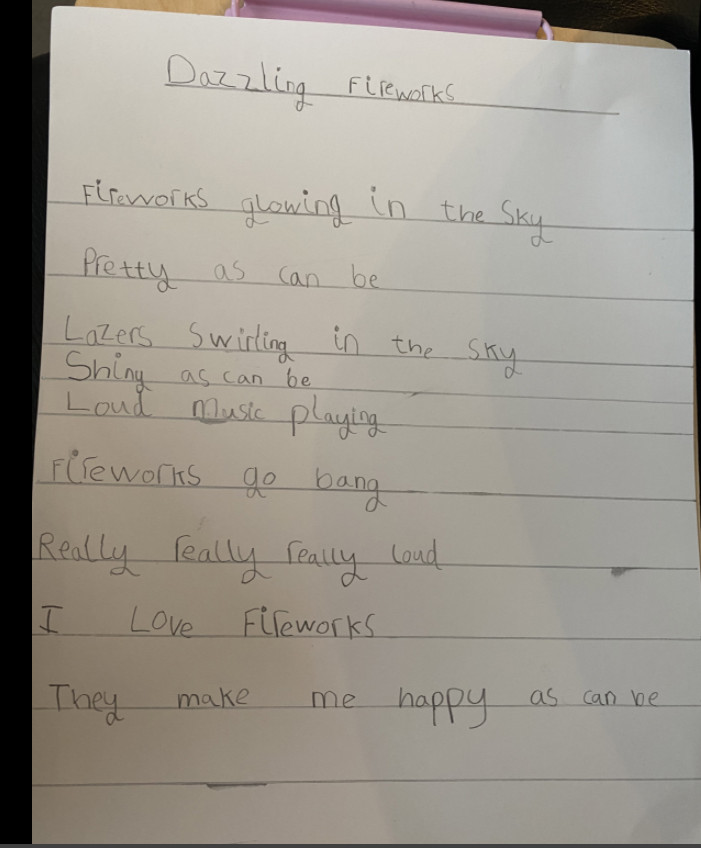 Dazzling Fireworks
Fireworks glowing in the Sky
Pretty as can be
Lazers Swirling in the sky
Shiny as can be
Loud Music playing
Fireworks go bang
Really really really loud
I Love Fireworks
They make me happy as can be